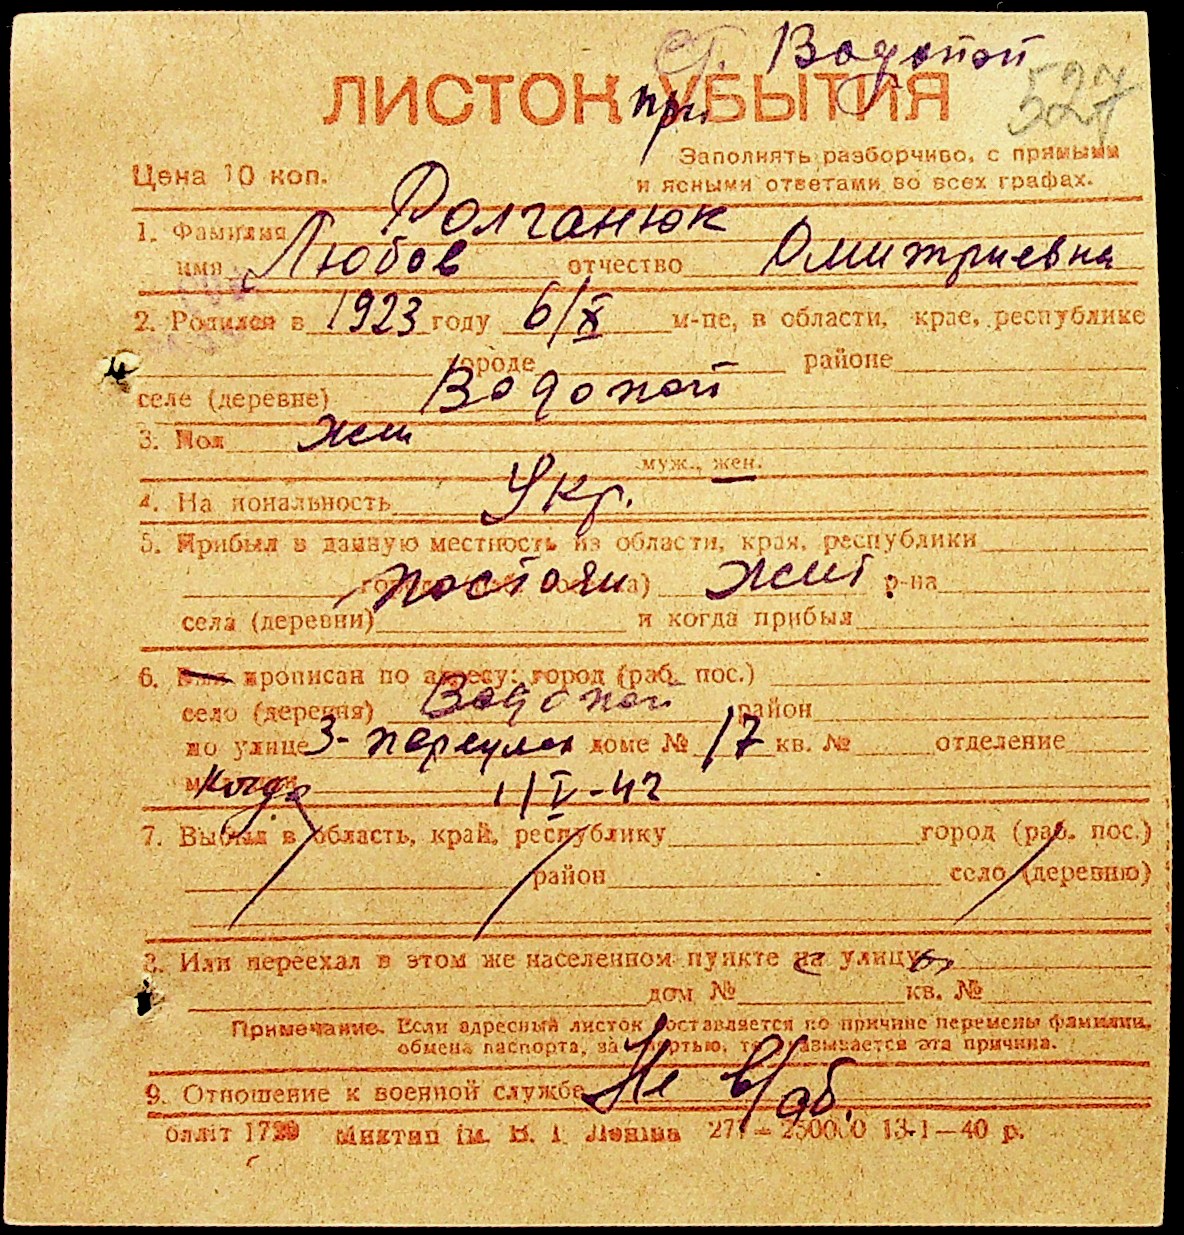 ст. Водопой
ЛИСТОК при УБЫТИЯ
527
Заполнять разборчиво, с прямыми
Цена 10 коп.
и ясными ответами во всех графах.
1. Фамилия Долганюк
имя Любов отчество Дмитриевна
2. Родился в 1923 году 6/X м-це, в области, крае, республике
городе районе
селе (деревне) Водопой
3. Пол жен
муж., жен.
4. Национальность Укр.
5. Прибыл в данную местность из области, края, республики
постоян жит. р-на
села (деревни) и когда прибыл
6. Был прописан по адресу: город (раб. пос.)
село (деревня) Водопой район
по улице 3-переулок доме № 17 кв. № отделение
когда 1/V-42
7. Выбыл в область, край, республику город (раб. пос.)
район село (деревню)
8. Или переехал в этом же населенном пункте на улицу
дом № кв. №
Примечание. Если адресный листок составляется по причине перемены фамилии,
обмена паспорта, за смертью, то указывается эта причина.
9. Отношение к военной службе Не в/об.
Облліт 1729 Миктип ім. В. І. Леніна 271 — 250000 13-1—40 р.